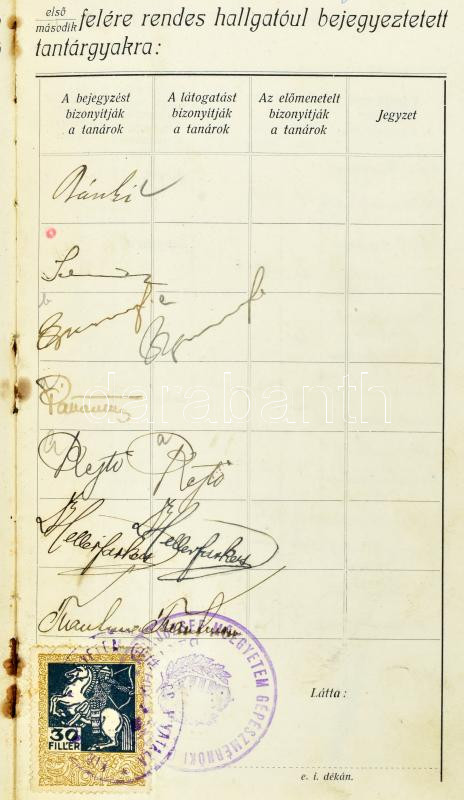 első
második felére rendes hallgatóul bejegyeztetett
tantárgyakra:
A bejegyzést bizonyitják a tanárok
A látogatást bizonyitják a tanárok
Az előmenetelt bizonyitják a tanárok
Jegyzet
Bánki
b
e
a
Rejtő Rejtő
Heller Farkas Heller Farkas
darabanth
JÓZSEF MŰEGYETEM GÉPÉSZMÉRNÖKI
30
FILLÉR
Látta:
e. i. dékán.